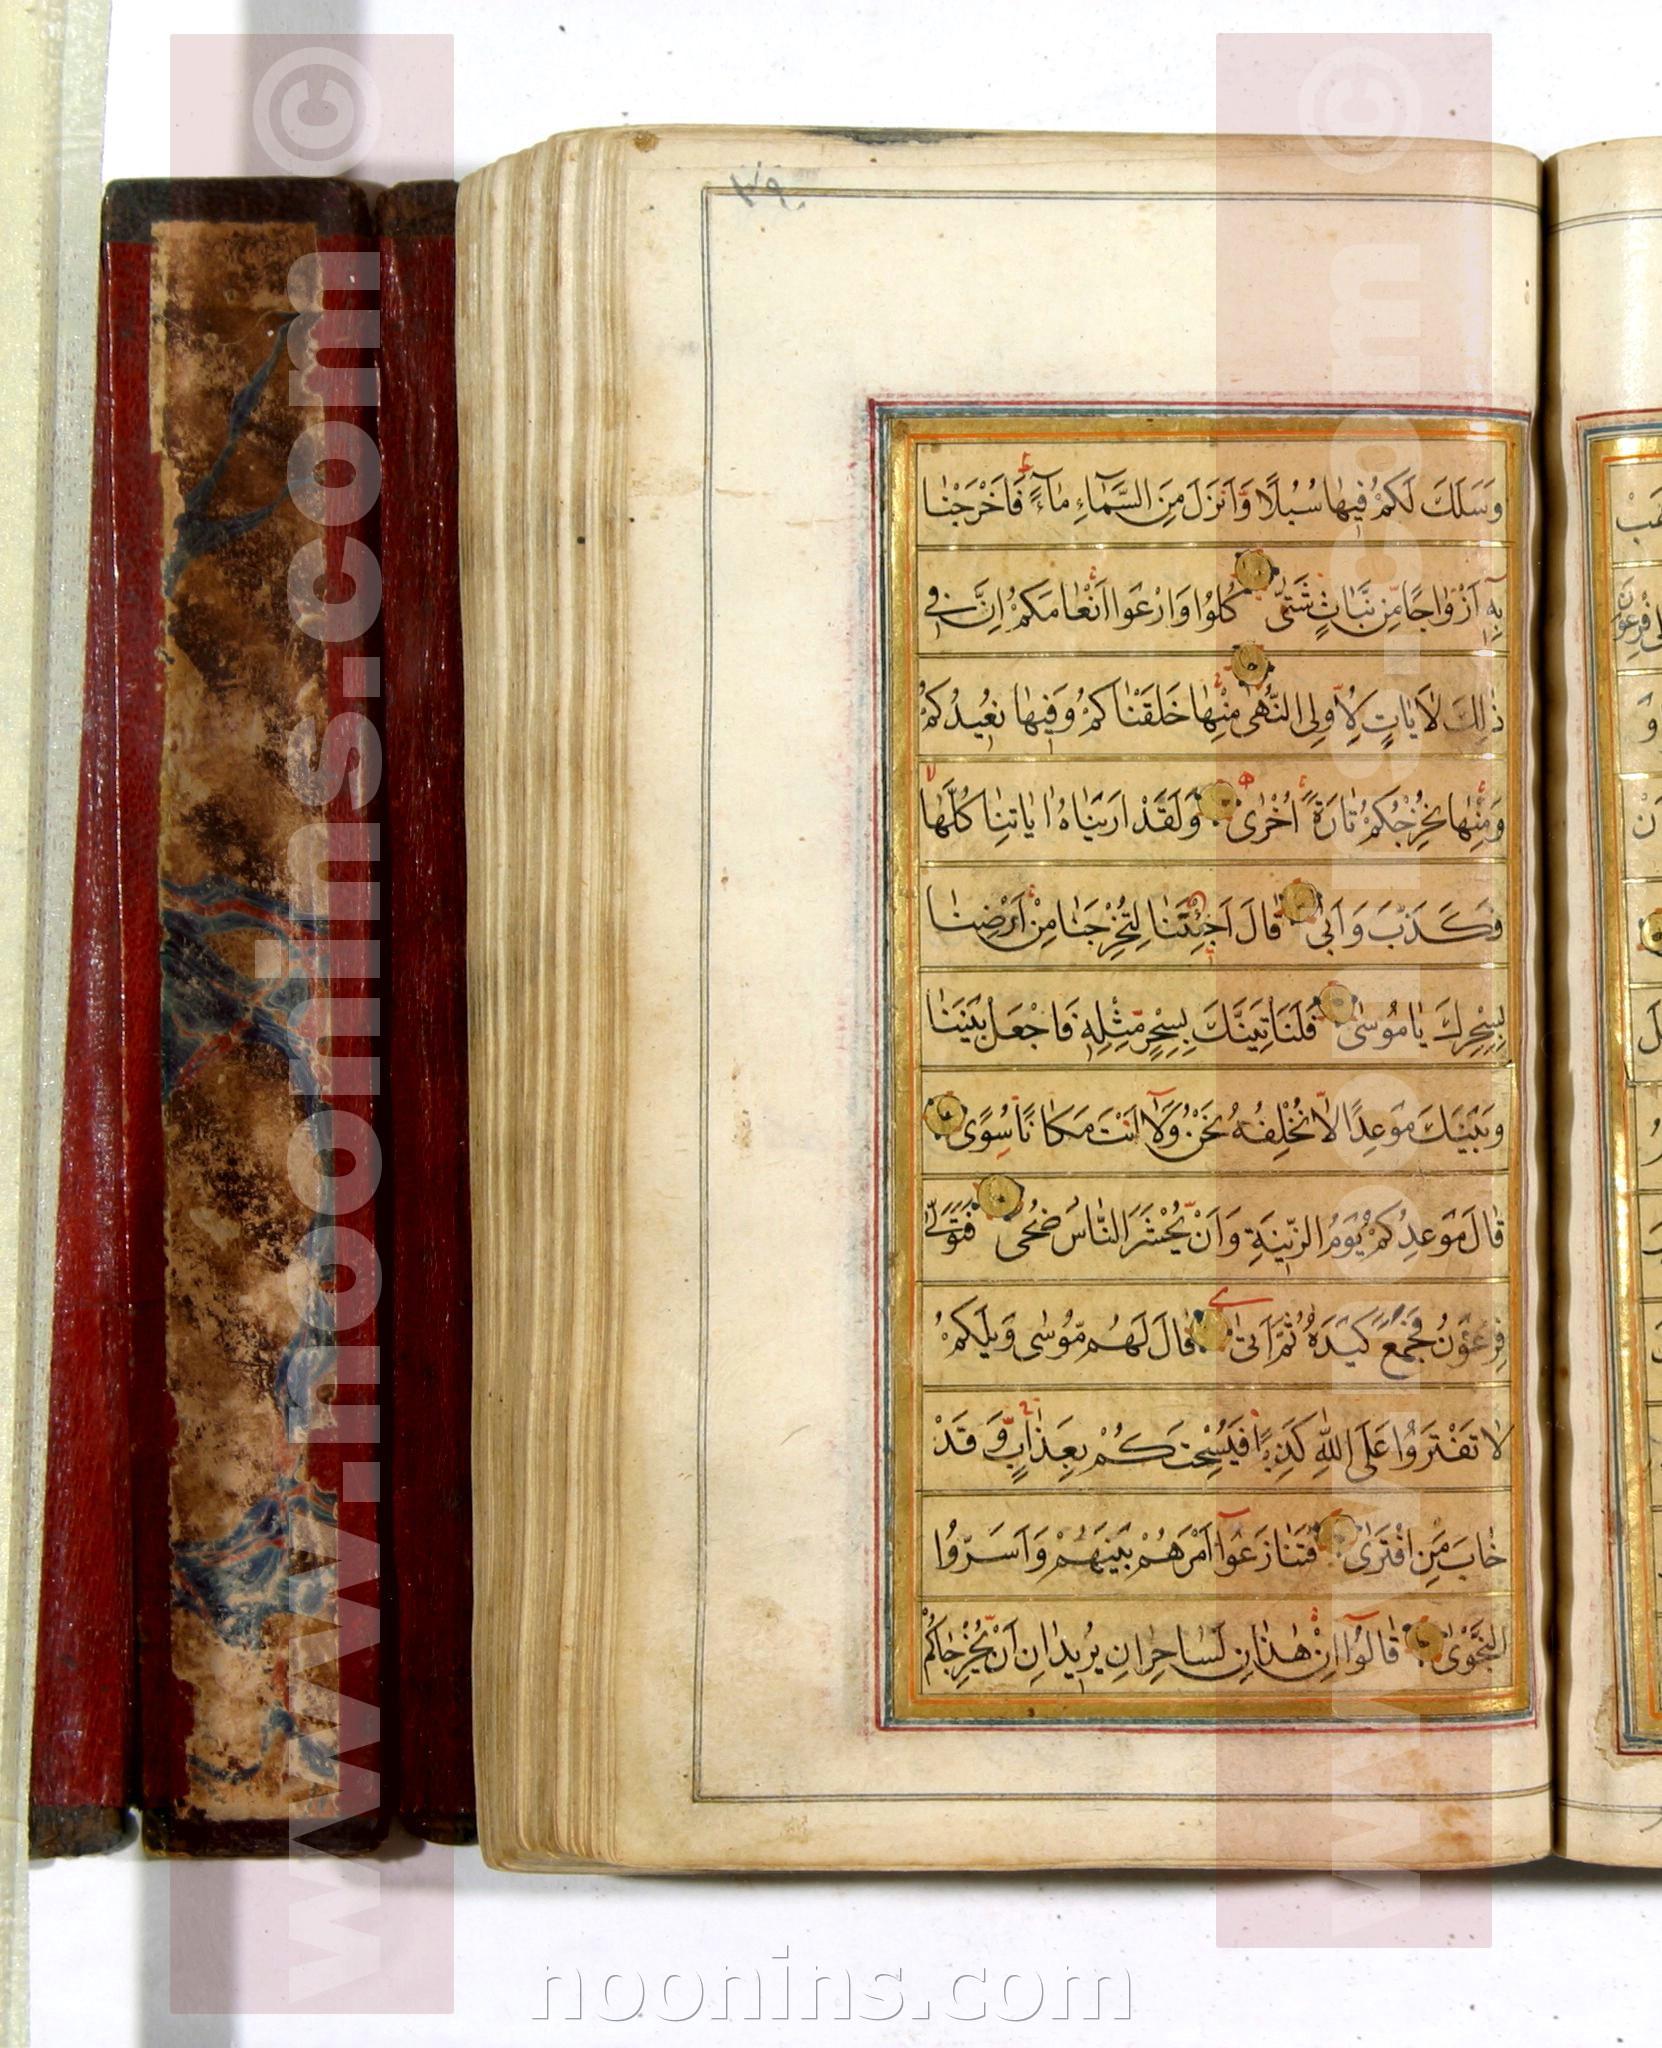 وَسَلَكَ لَكُمْ فِيهَا سُبُلًا وَّاَنْزَلَ مِنَ السَّمَآءِ مَآءً فَاَخْرَجْنَا
بِهٖ اَزْوَاجًا مِّنْ نَّبَاتٍ شَتّٰى كُلُوا وَارْعَوْا اَنْعَامَكُمْ اِنَّ فِي
ذٰلِكَ لَاٰيَاتٍ لِاُولِي النُّهٰى مِنْهَا خَلَقْنَاكُمْ وَفِيهَا نُعِيدُكُمْ
وَمِنْهَا نُخْرِجُكُمْ تَارَةً اُخْرٰى وَلَقَدْ اَرَيْنَاهُ اٰيَاتِنَا كُلَّهَا
فَكَذَّبَ وَاَبٰى قَالَ اَجِئْتَنَا لِتُخْرِجَنَا مِنْ اَرْضِنَا
بِسِحْرِكَ يَا مُوسٰى فَلَنَاْتِيَنَّكَ بِسِحْرٍ مِّثْلِهٖ فَاجْعَلْ بَيْنَنَا
وَبَيْنَكَ مَوْعِدًا لَّا نُخْلِفُهُ نَحْنُ وَلَآ اَنْتَ مَكَانًا سُوًى
قَالَ مَوْعِدُكُمْ يَوْمُ الزِّينَةِ وَاَنْ يُّحْشَرَ النَّاسُ ضُحًى فَتَوَلّٰى
فِرْعَوْنُ فَجَمَعَ كَيْدَهُ ثُمَّ اَتٰى قَالَ لَهُمْ مُّوسٰى وَيْلَكُمْ
لَا تَفْتَرُوا عَلَى اللّٰهِ كَذِبًا فَيُسْحِتَكُمْ بِعَذَابٍ وَّقَدْ
خَابَ مَنِ افْتَرٰى فَتَنَازَعُوٓا اَمْرَهُمْ بَيْنَهُمْ وَاَسَرُّوا
النَّجْوٰى قَالُوٓا اِنْ هٰذَانِ لَسَاحِرَانِ يُرِيدَانِ اَنْ يُّخْرِجَاكُمْ
www.noonins.com ©
www.noonins.com ©
noonins.com